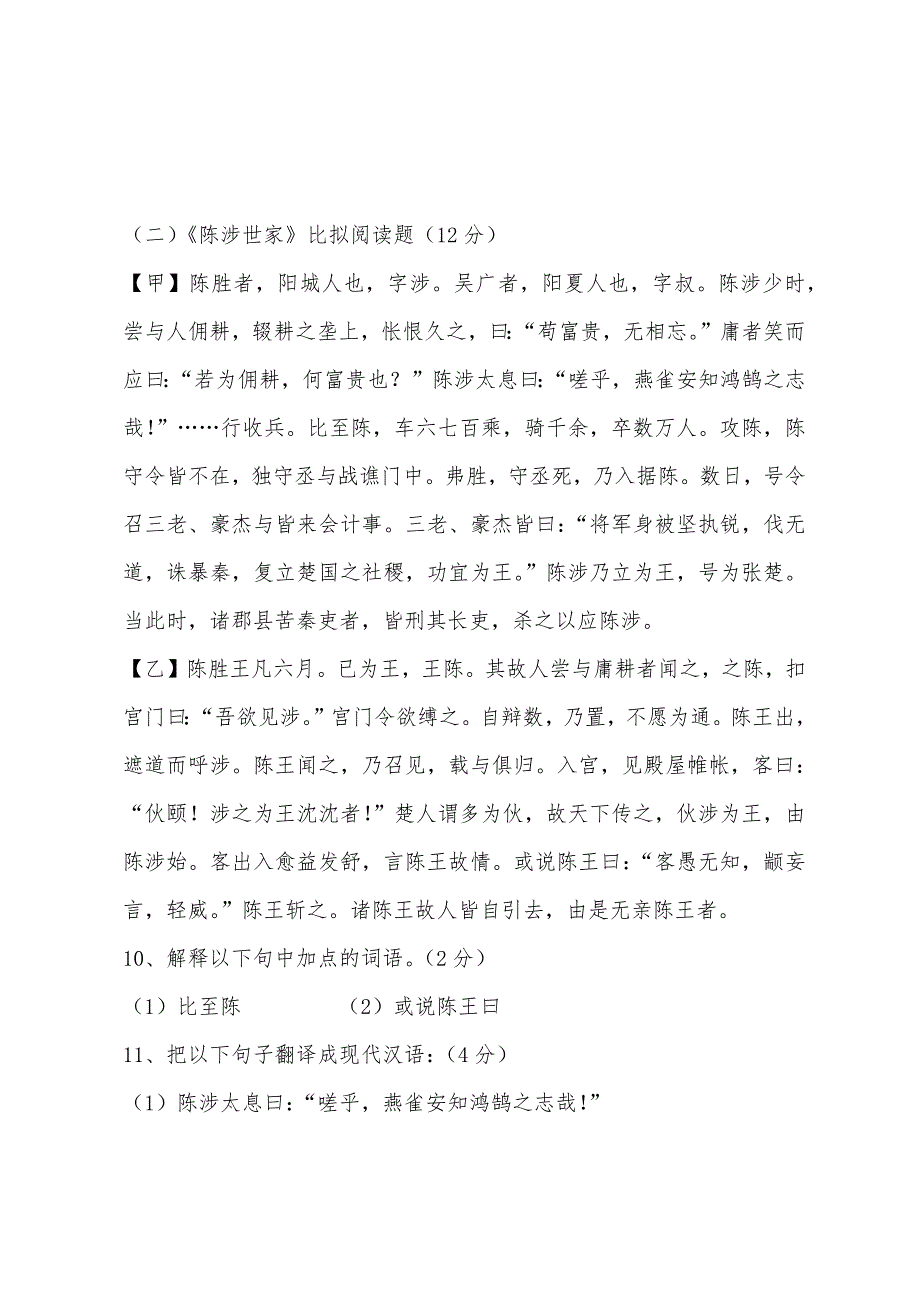 （二）《陈涉世家》比拟阅读题（12分）
【甲】陈胜者，阳城人也，字涉。吴广者，阳夏人也，字叔。陈涉少时，
尝与人佣耕，辍耕之垄上，怅恨久之，曰：“苟富贵，无相忘。”庸者笑而
应曰：“若为佣耕，何富贵也？”陈涉太息曰：“嗟乎，燕雀安知鸿鹄之志
哉！”……行收兵。比至陈，车六七百乘，骑千余，卒数万人。攻陈，陈
守令皆不在，独守丞与战谯门中。弗胜，守丞死，乃入据陈。数日，号令
召三老、豪杰与皆来会计事。三老、豪杰皆曰：“将军身被坚执锐，伐无
道，诛暴秦，复立楚国之社稷，功宜为王。”陈涉乃立为王，号为张楚。
当此时，诸郡县苦秦吏者，皆刑其长吏，杀之以应陈涉。
【乙】陈胜王凡六月。已为王，王陈。其故人尝与庸耕者闻之，之陈，扣
宫门曰：“吾欲见涉。”宫门令欲缚之。自辩数，乃置，不愿为通。陈王出，
遮道而呼涉。陈王闻之，乃召见，载与俱归。入宫，见殿屋帷帐，客曰：
“伙颐！涉之为王沈沈者！”楚人谓多为伙，故天下传之，伙涉为王，由
陈涉始。客出入愈益发舒，言陈王故情。或说陈王曰：“客愚无知，颛妄
言，轻威。”陈王斩之。诸陈王故人皆自引去，由是无亲陈王者。
10、解释以下句中加点的词语。（2分）
（1）比至陈 （2）或说陈王曰
11、把以下句子翻译成现代汉语：（4分）
（1）陈涉太息曰：“嗟乎，燕雀安知鸿鹄之志哉！”